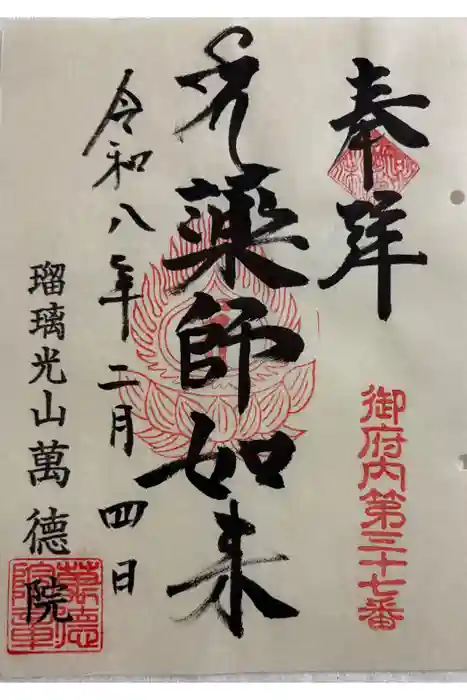 奉拝
御府内第三十七番
薬師如来
令和八年二月四日
瑠璃光山萬德院
萬徳院章